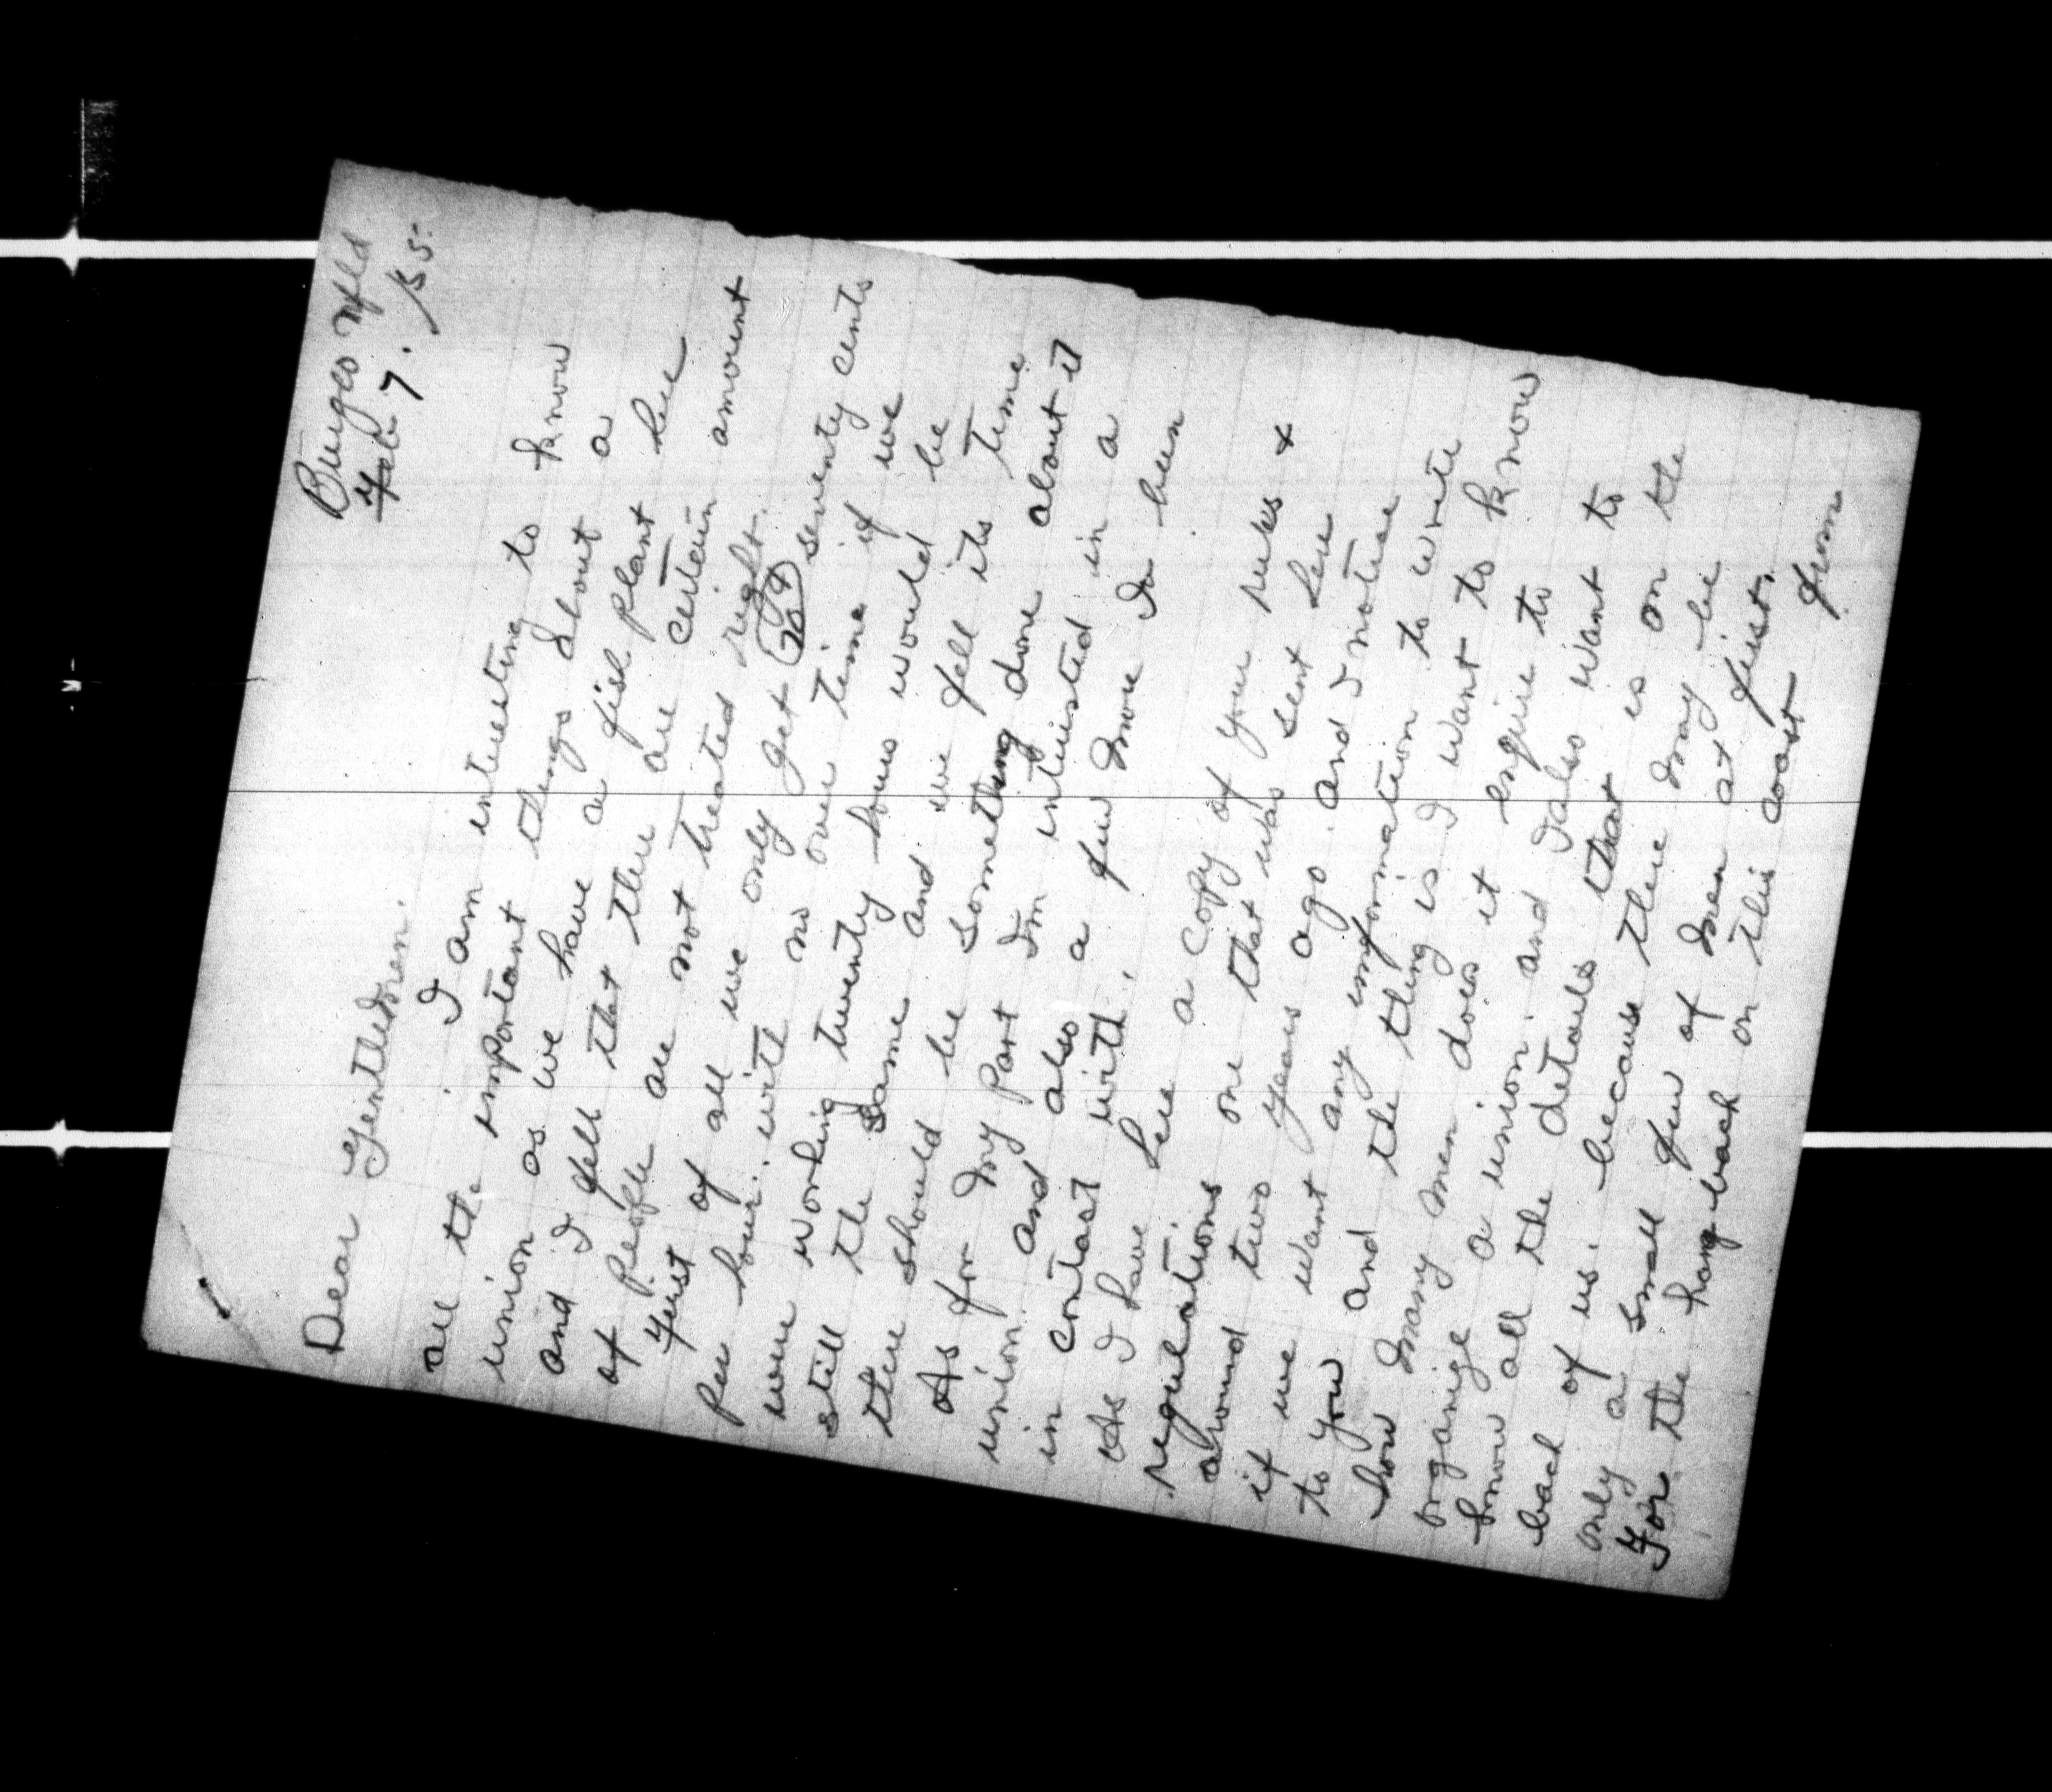 Burgeo Nfld
Feb 7. /55.
Dear Gentledmen.
I am interesting to know
all the important things about a
union as we have a fish plant here
and I fell that there are certain amount
of people are not treated right.
First of all we only get 70¢ seventy cents
per hour. with no over time if we
were working twenty hours would be
still the same and we fell its time
there should be something done about it
As for my part Im intristed in a
union and also a few more Iv been
in contact with.
As I have here a copy of your rules &
regulations one that was sent here
around two years ago. and I notice
if we want any imformation to write
to you and the thing is I want to know
how many men does it enquire to
organize a union. and I also want to
know all the details that is on the
back of us. because there may be
only a small few of men at first.
For the hang back on this coast from